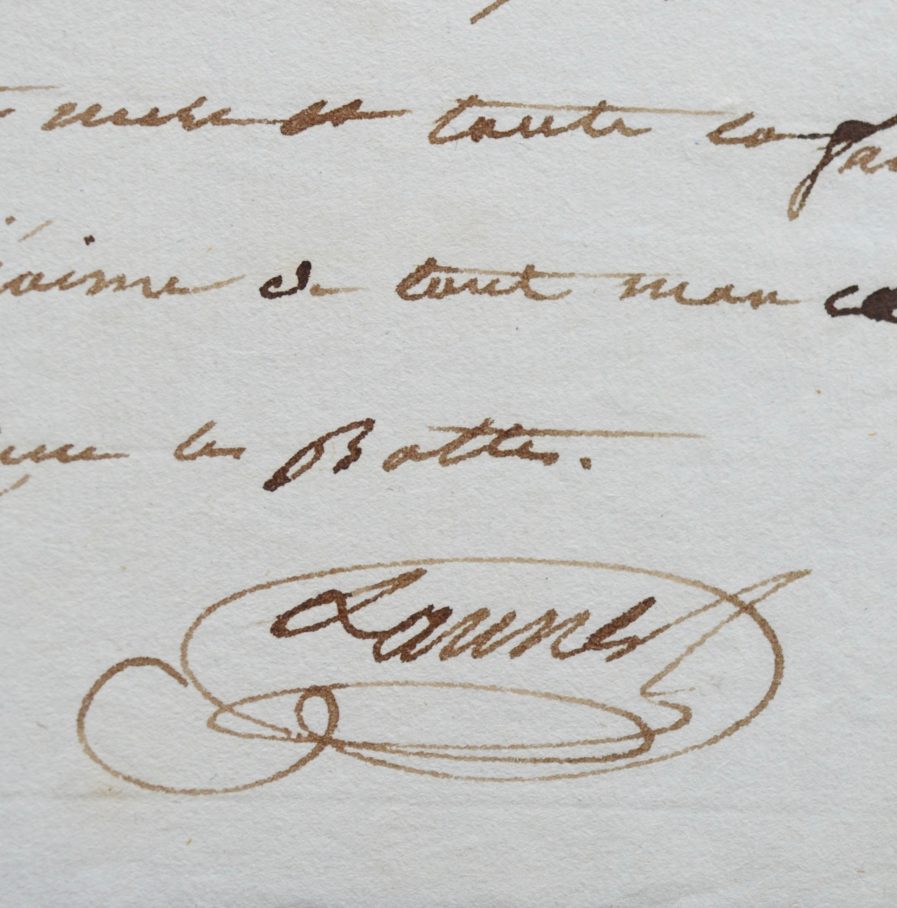 mere et toute la fa
j'aime de tout mon c
les Bottes.
Lannes